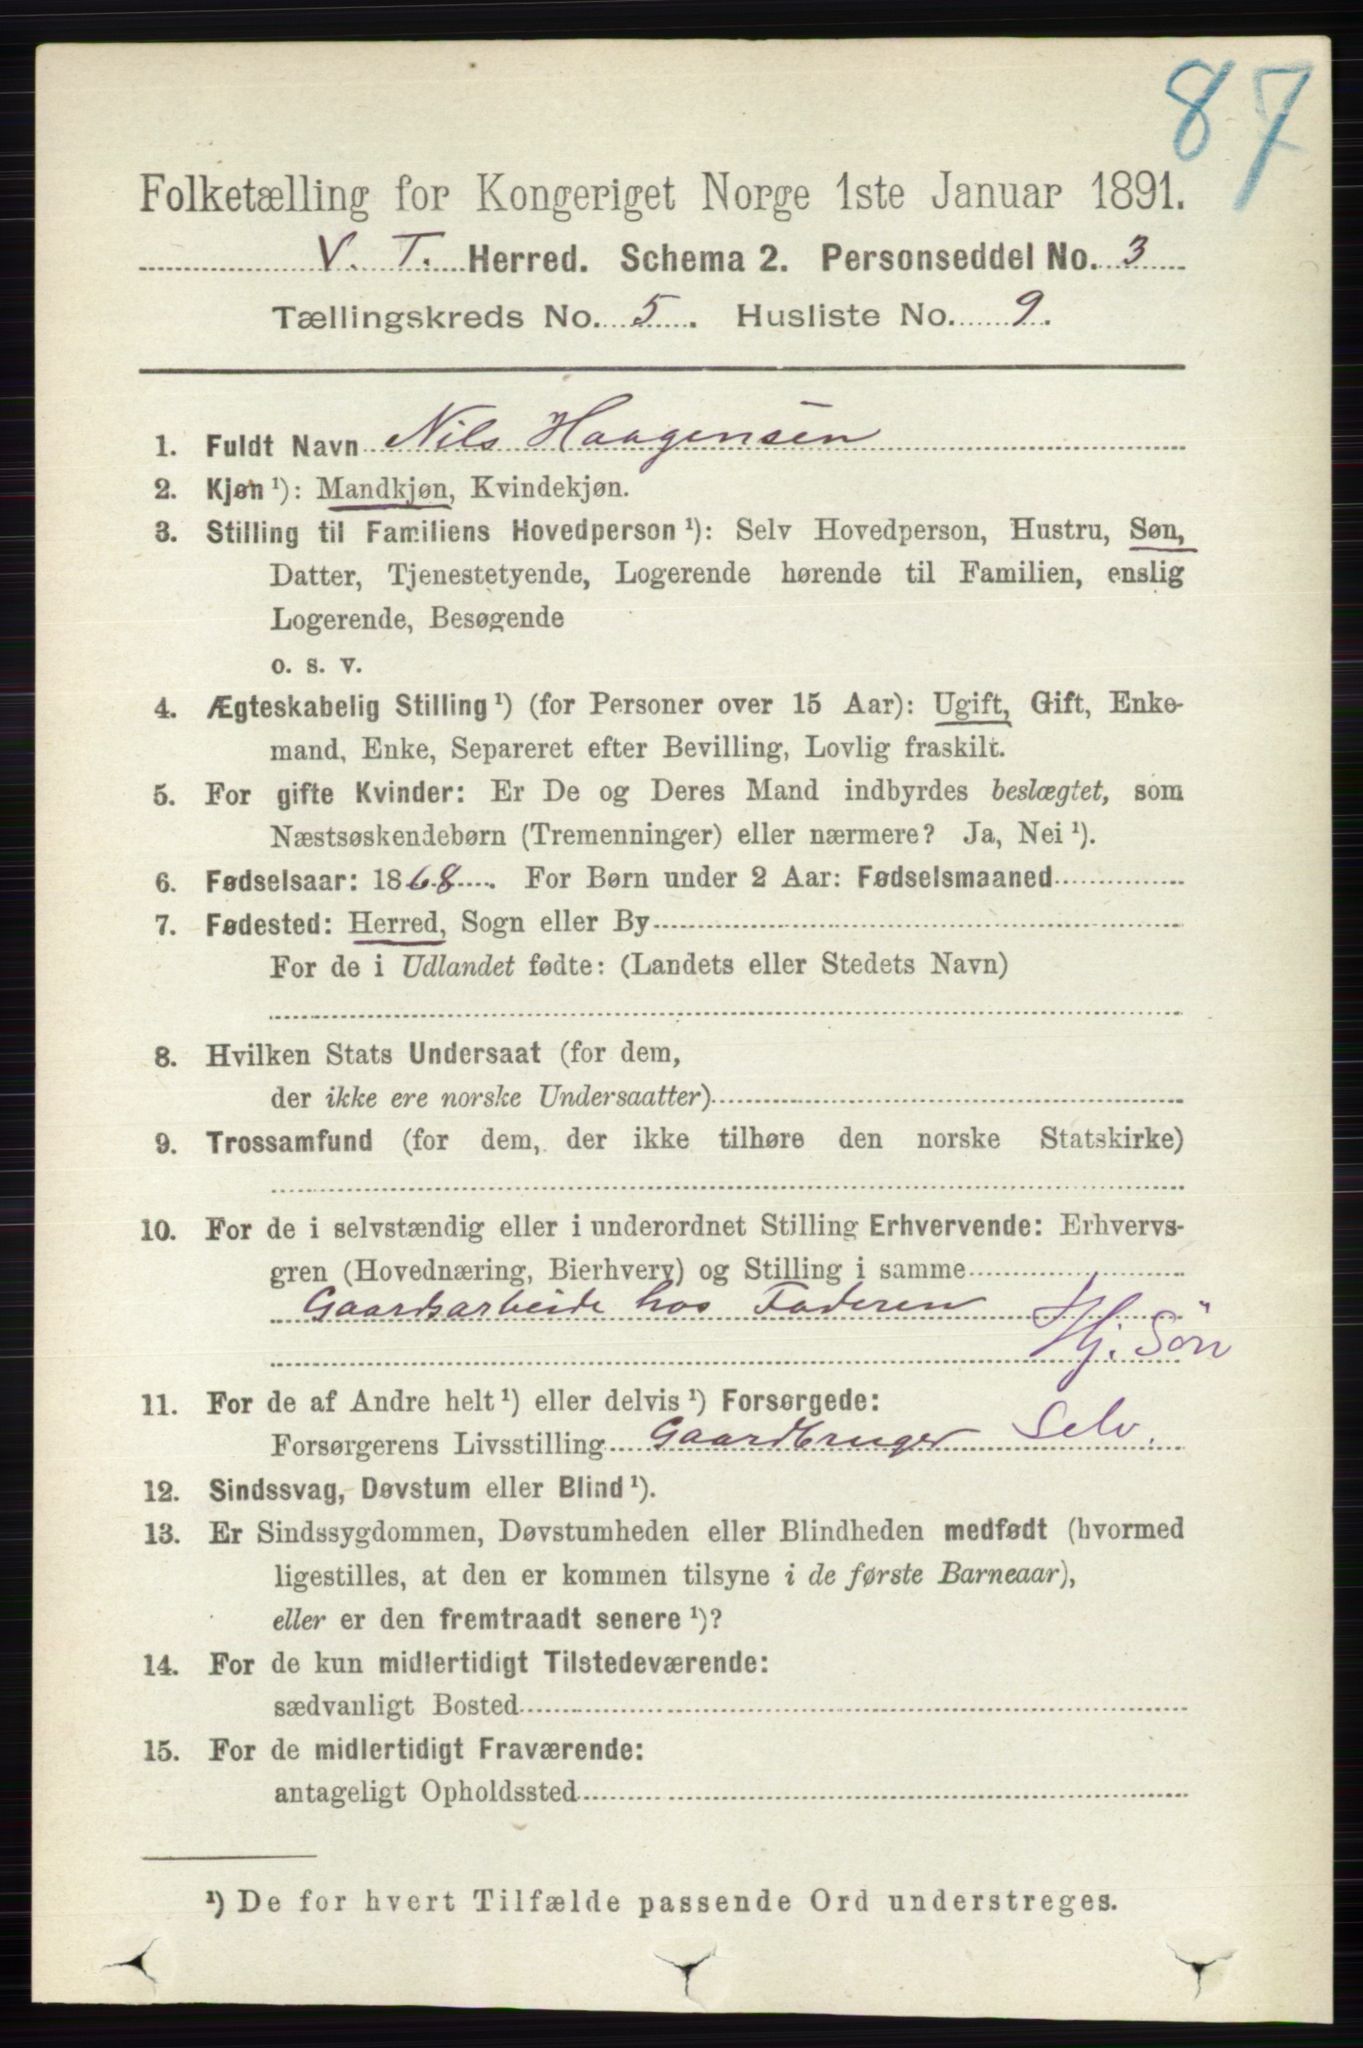 87
Folketælling for Kongeriget Norge 1ste Januar 1891.
V. T. Herred. Schema 2. Personseddel No. 3
Tællingskreds No. 5. Husliste No. 9.
1. Fuldt Navn Nils Haagensen
2. Kjøn ¹): Mandkjøn, Kvindekjøn.
3. Stilling til Familiens Hovedperson ¹): Selv Hovedperson, Hustru, Søn,
Datter, Tjenestetyende, Logerende hørende til Familien, enslig
Logerende, Besøgende
o. s. v.
4. Ægteskabelig Stilling ¹) (for Personer over 15 Aar): Ugift, Gift, Enke-
mand, Enke, Separeret efter Bevilling, Lovlig fraskilt.
5. For gifte Kvinder: Er De og Deres Mand indbyrdes beslægtet, som
Næstsøskendebørn (Tremenninger) eller nærmere? Ja, Nei ¹).
6. Fødselsaar: 1868. For Børn under 2 Aar: Fødselsmaaned
7. Fødested: Herred, Sogn eller By
For de i Udlandet fødte: (Landets eller Stedets Navn)
8. Hvilken Stats Undersaat (for dem,
der ikke ere norske Undersaatter)
9. Trossamfund (for dem, der ikke tilhøre den norske Statskirke)
10. For de i selvstændig eller i underordnet Stilling Erhvervende: Erhvervs-
gren (Hovednæring, Bierhverv) og Stilling i samme
Gaardsarbeide hos Faderen
Hj. Søn
11. For de af Andre helt ¹) eller delvis ¹) Forsørgede:
Forsørgerens Livsstilling Gaardbruger Selv.
12. Sindssvag, Døvstum eller Blind ¹).
13. Er Sindssygdommen, Døvstumheden eller Blindheden medfødt (hvormed
ligestilles, at den er kommen tilsyne i de første Barneaar),
eller er den fremtraadt senere ¹)?
14. For de kun midlertidigt Tilstedeværende:
sædvanligt Bosted
15. For de midlertidigt Fraværende:
antageligt Opholdssted
¹) De for hvert Tilfælde passende Ord understreges.